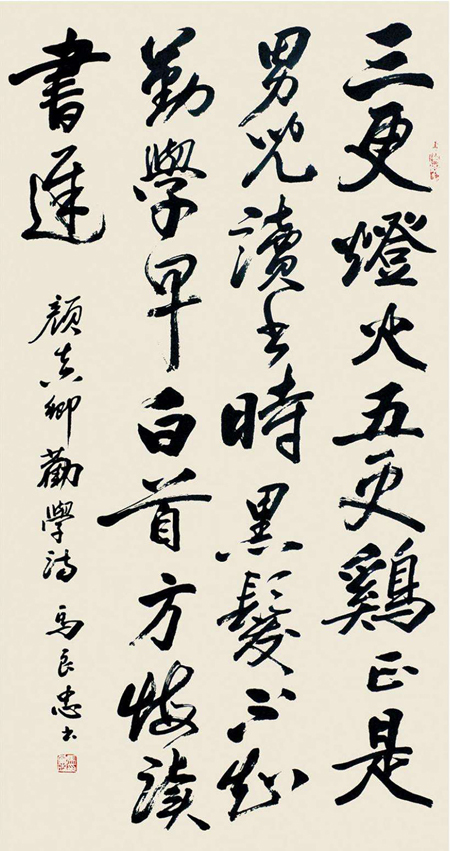 三更燈火五更鷄正是
男兒讀书時黑髮不知
勤學早白首方悔读
書遲
顏真卿勸學詩 馬良忠书